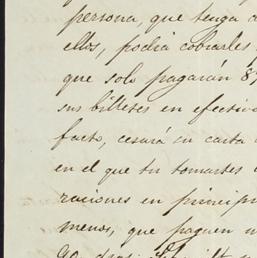 persona, que tenga
ellos, podia cobrarles
que solo pagarán 8
sus billetes en efectiv
facto, cesará su carta
en el que tu tomastes
raciones en princip
menos, que paguen
90 dias